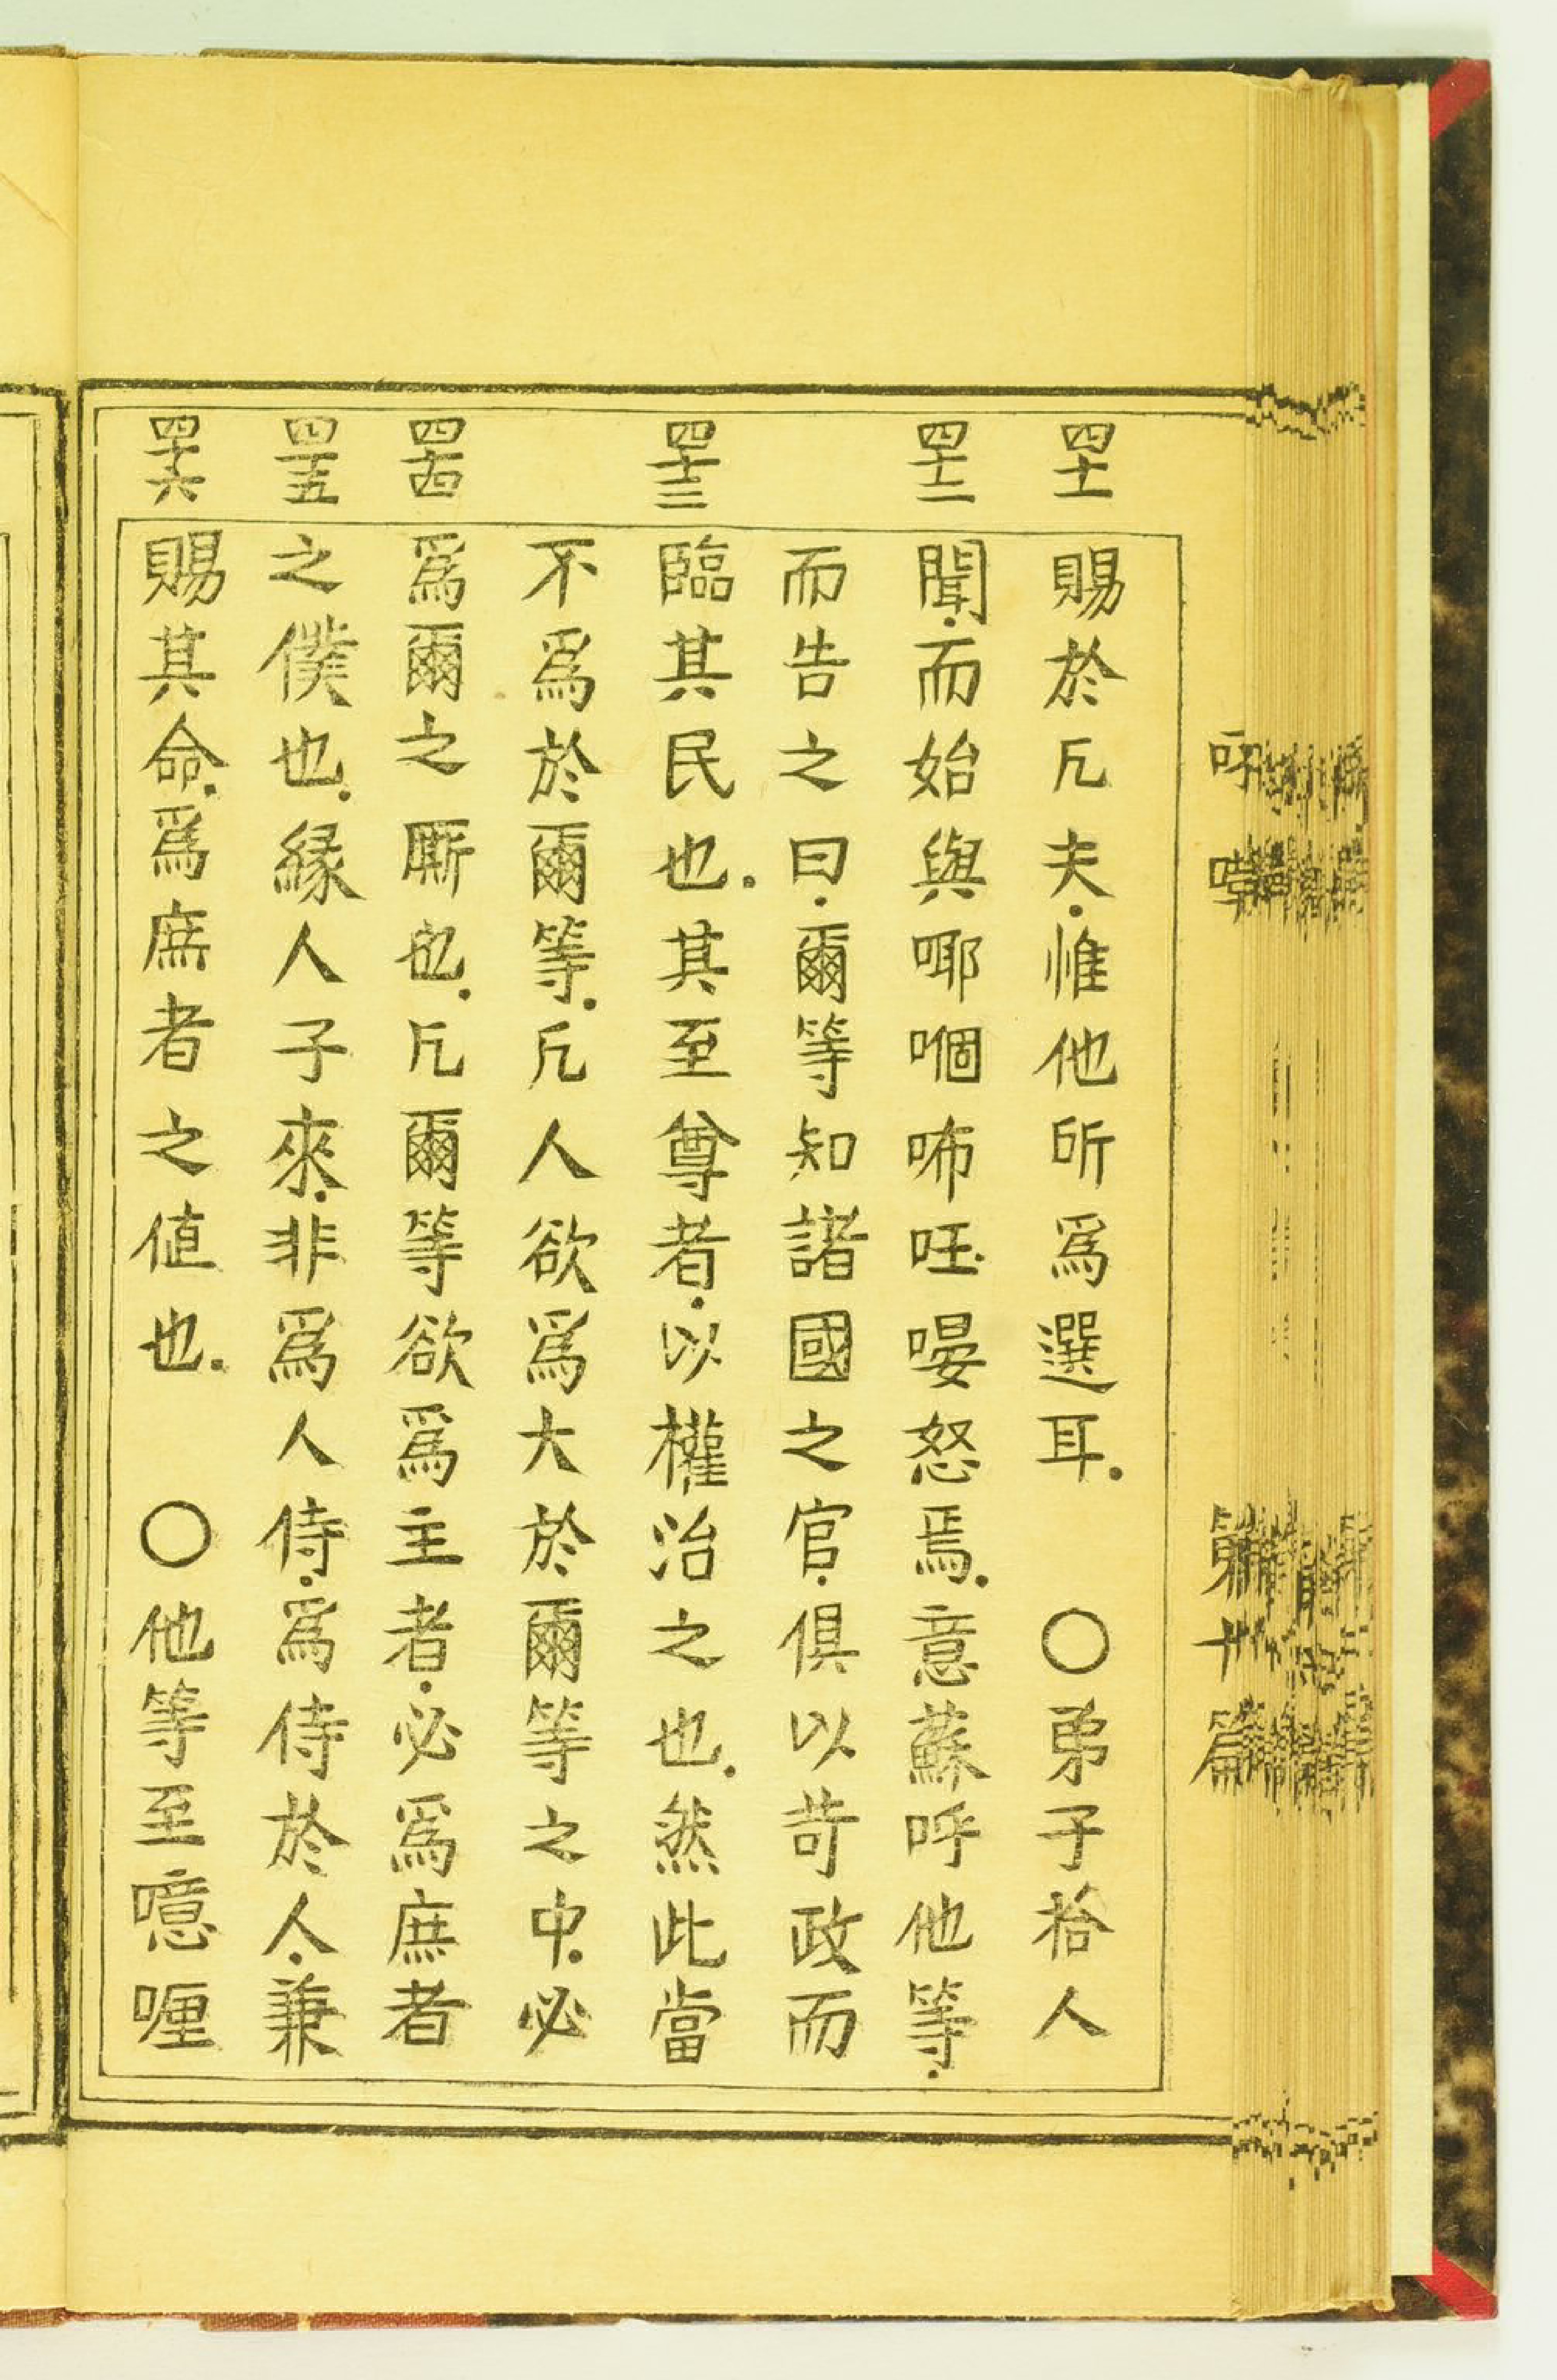 四十一
賜於凢夫.惟他所爲選耳. 〇弟子拾人
四十二
聞.而始與㖿㗂咘呸.㖧怒焉.意蘇呼他等.
而告之曰.爾等知諸國之官.俱以苛政而
四十三
臨其民也.其至尊者.以權治之也.然此當
不爲於爾等.凢人欲爲大於爾等之中.必
四十四
爲爾之厮也.凢爾等欲爲主者.必爲庶者
四十五
之僕也.緣人子來.非爲人侍.爲侍於人.兼
四十六
賜其命.爲庶者之值也. 〇他等至噫喱
第十篇